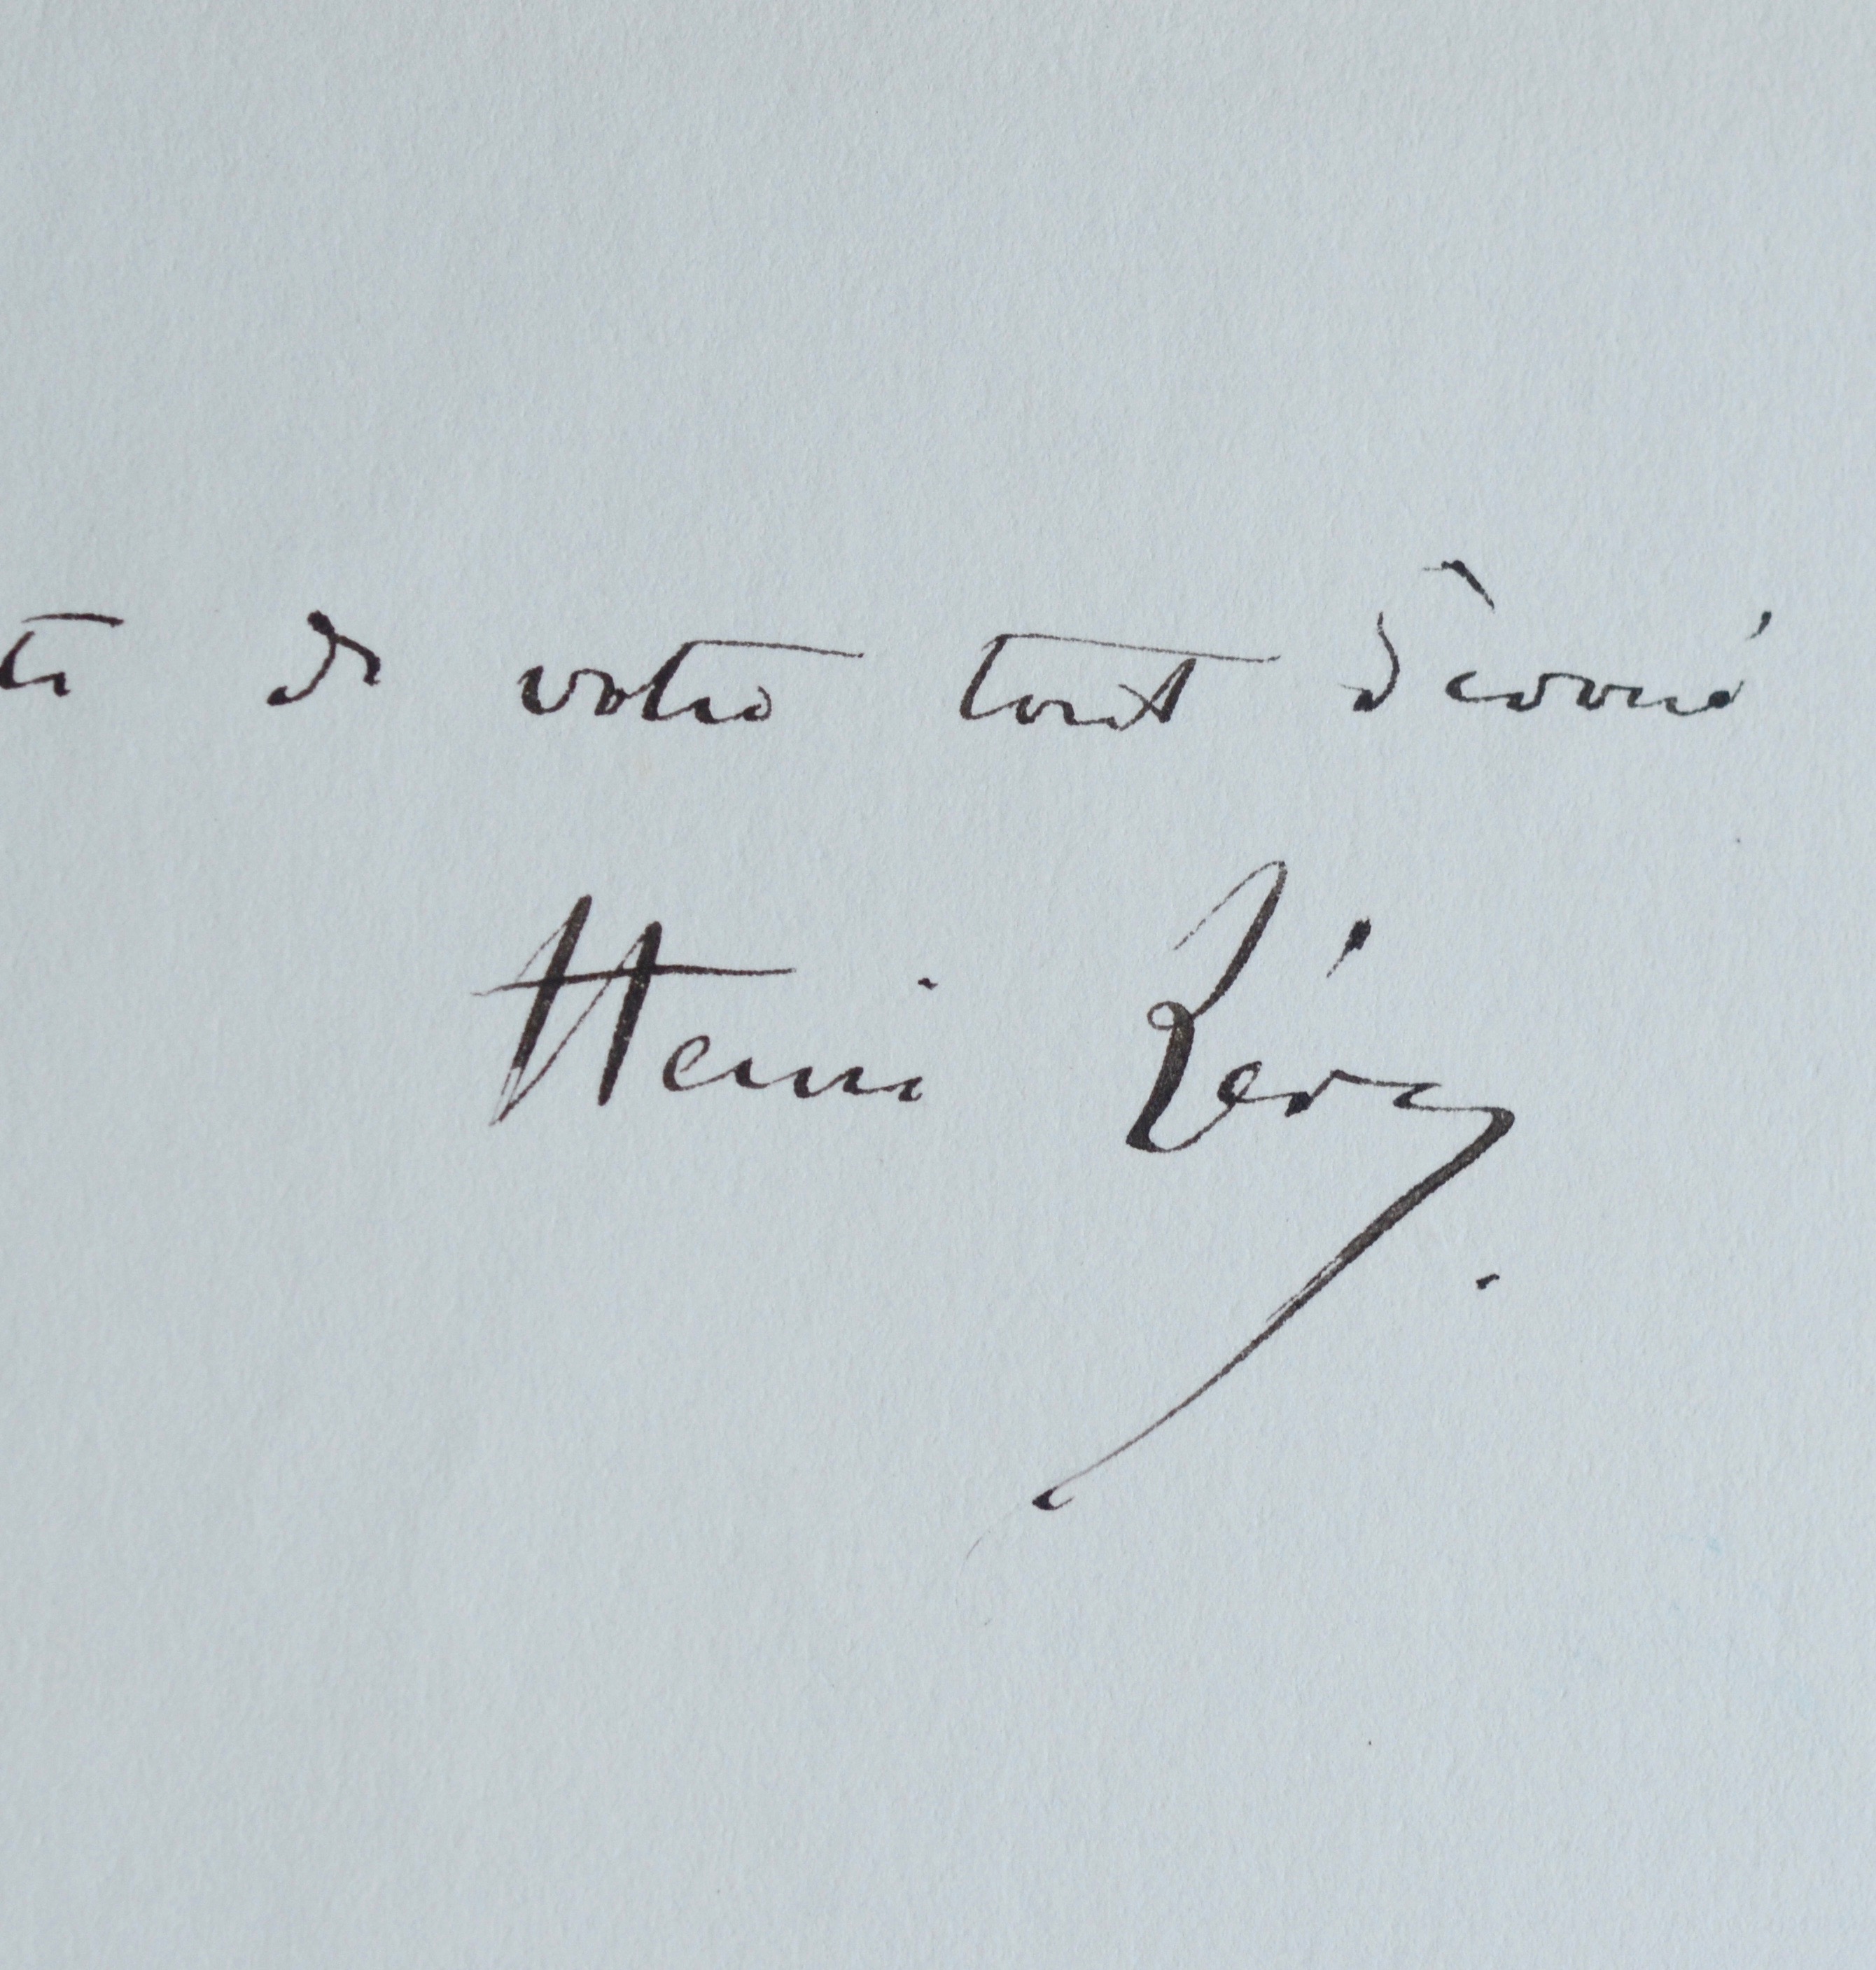 te de votre tout dévoué
Henri Lévy